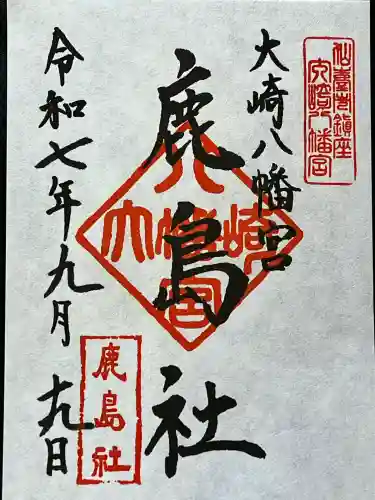 仙臺市鎮座
大崎八幡宮
大崎八幡宮
鹿島社
大崎八幡宮
令和七年九月十九日
鹿島社